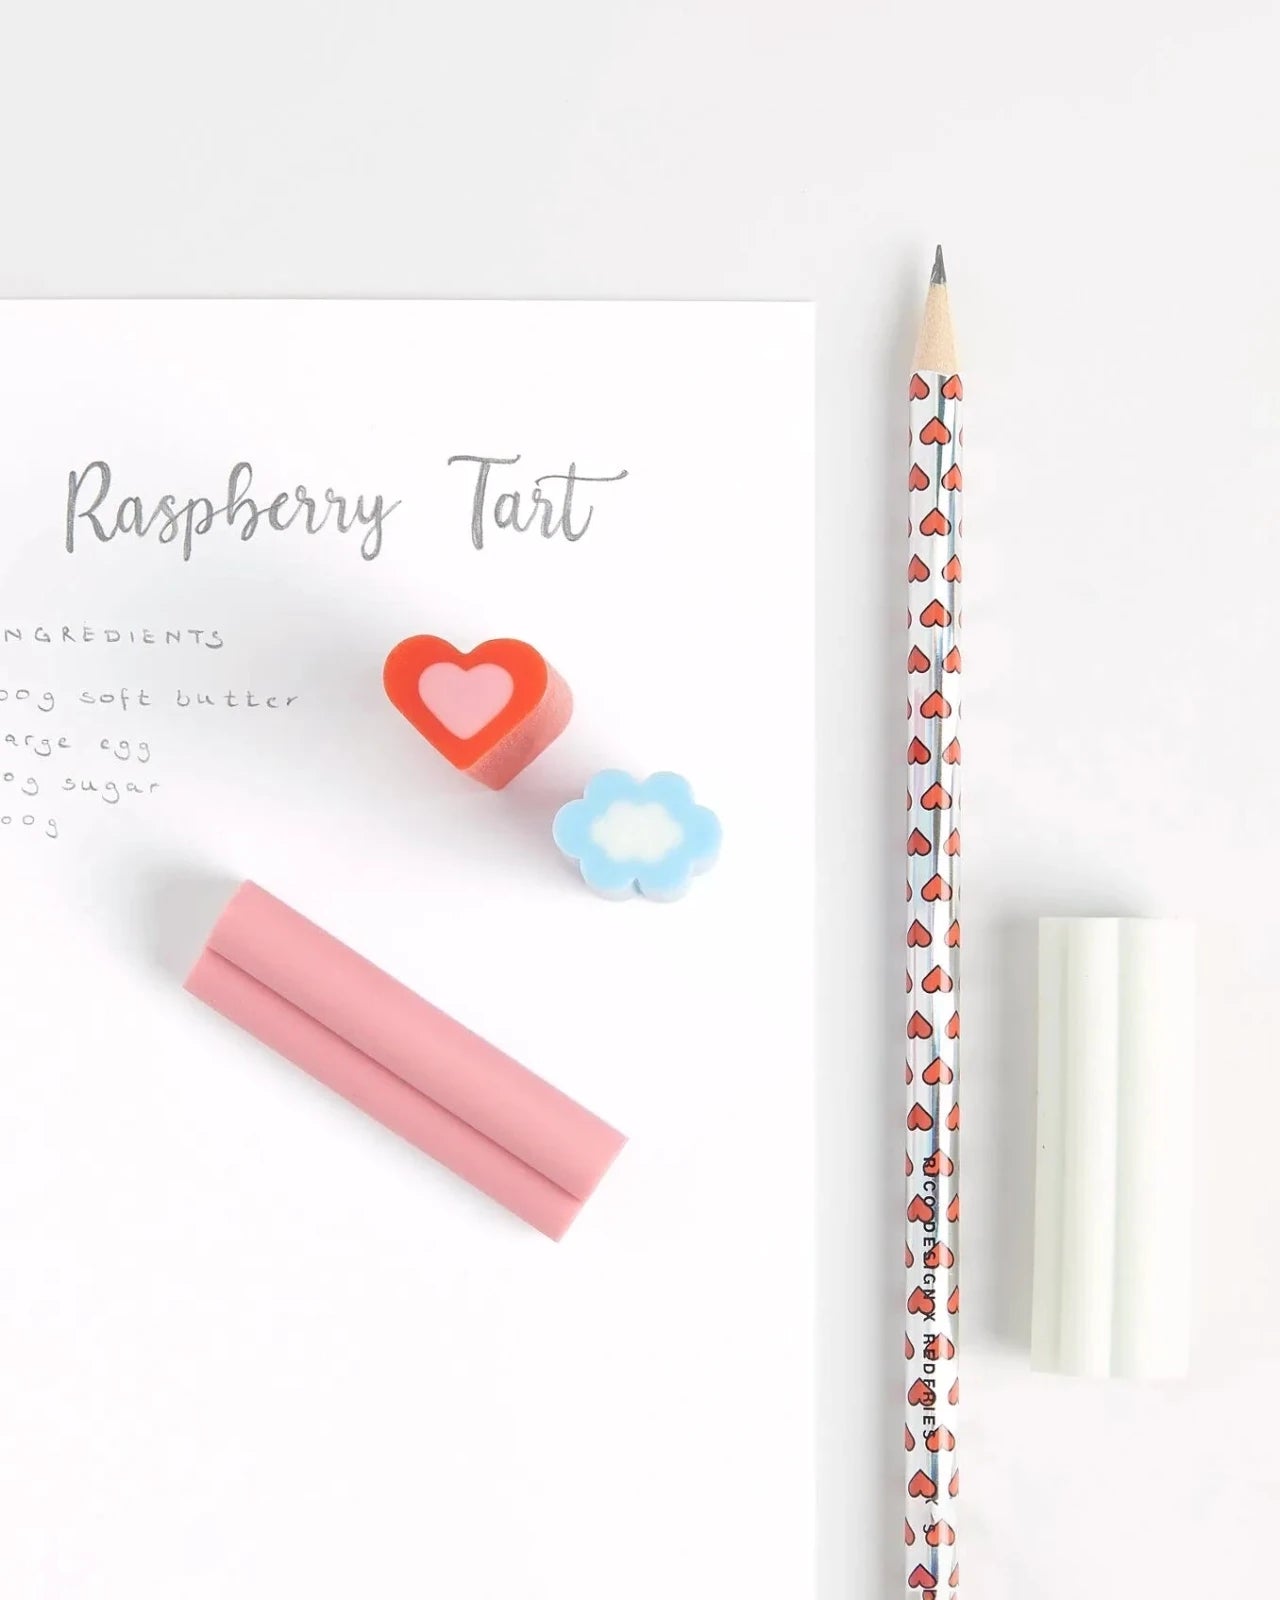 Raspberry Tart
NGREDIENTS
00g soft butter
arge egg
0g sugar
00g
RICO DESIGN X REDFRIES X S